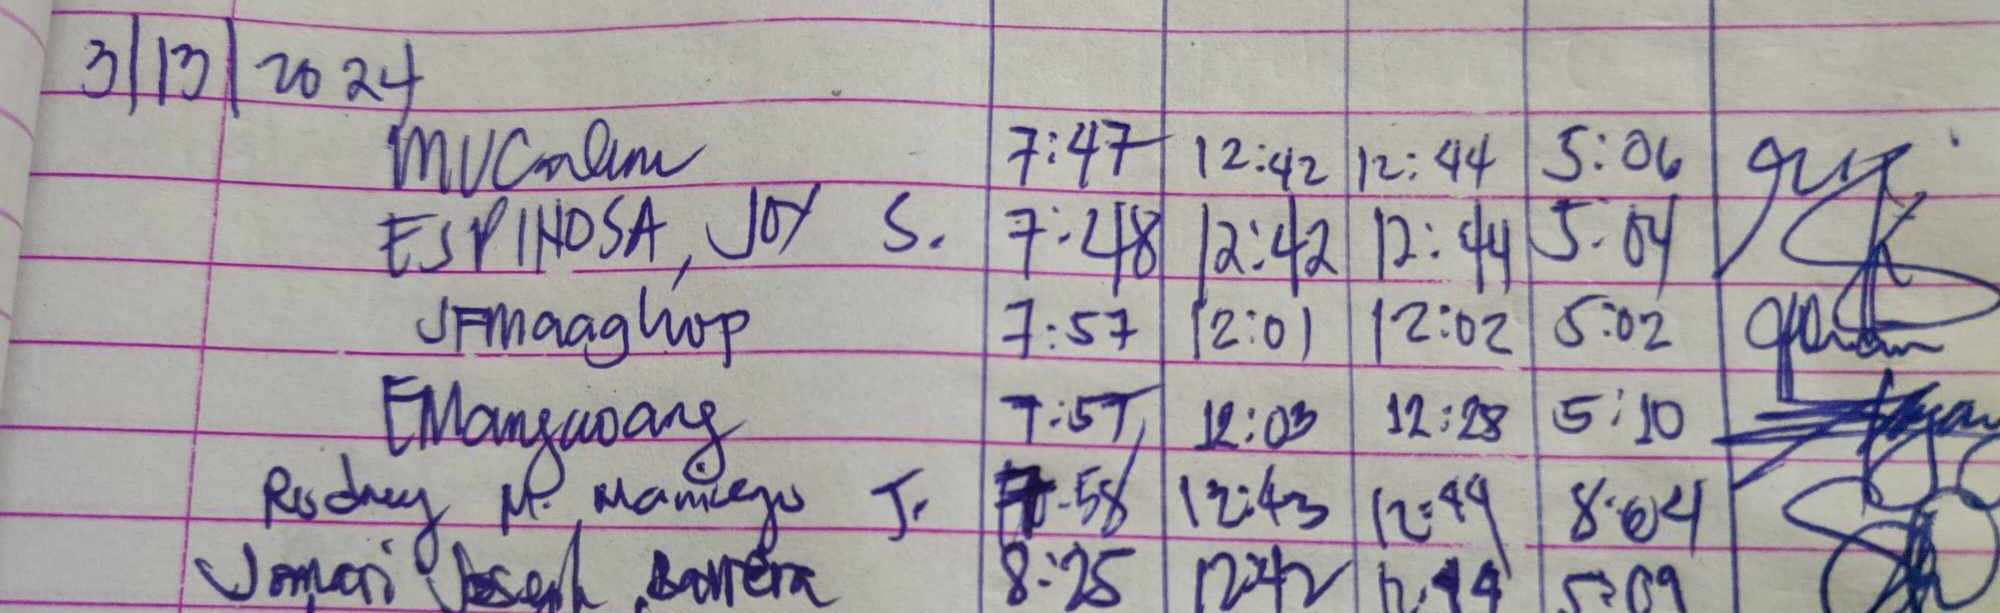 3/13/2024
7:47 12:42 12:44 5:06
ESPINOSA, JOY S. 7:48 12:42 12:44 5:04
JFMaaghop 7:57 12:01 12:02 5:02
EMangwang 7:57 12:03 12:28 5:10
Rodney M. Maniego Jr. 7:58 12:43 12:44 8:04
Jomari Joseph Barrera 8:25 12:42 12:44 5:09